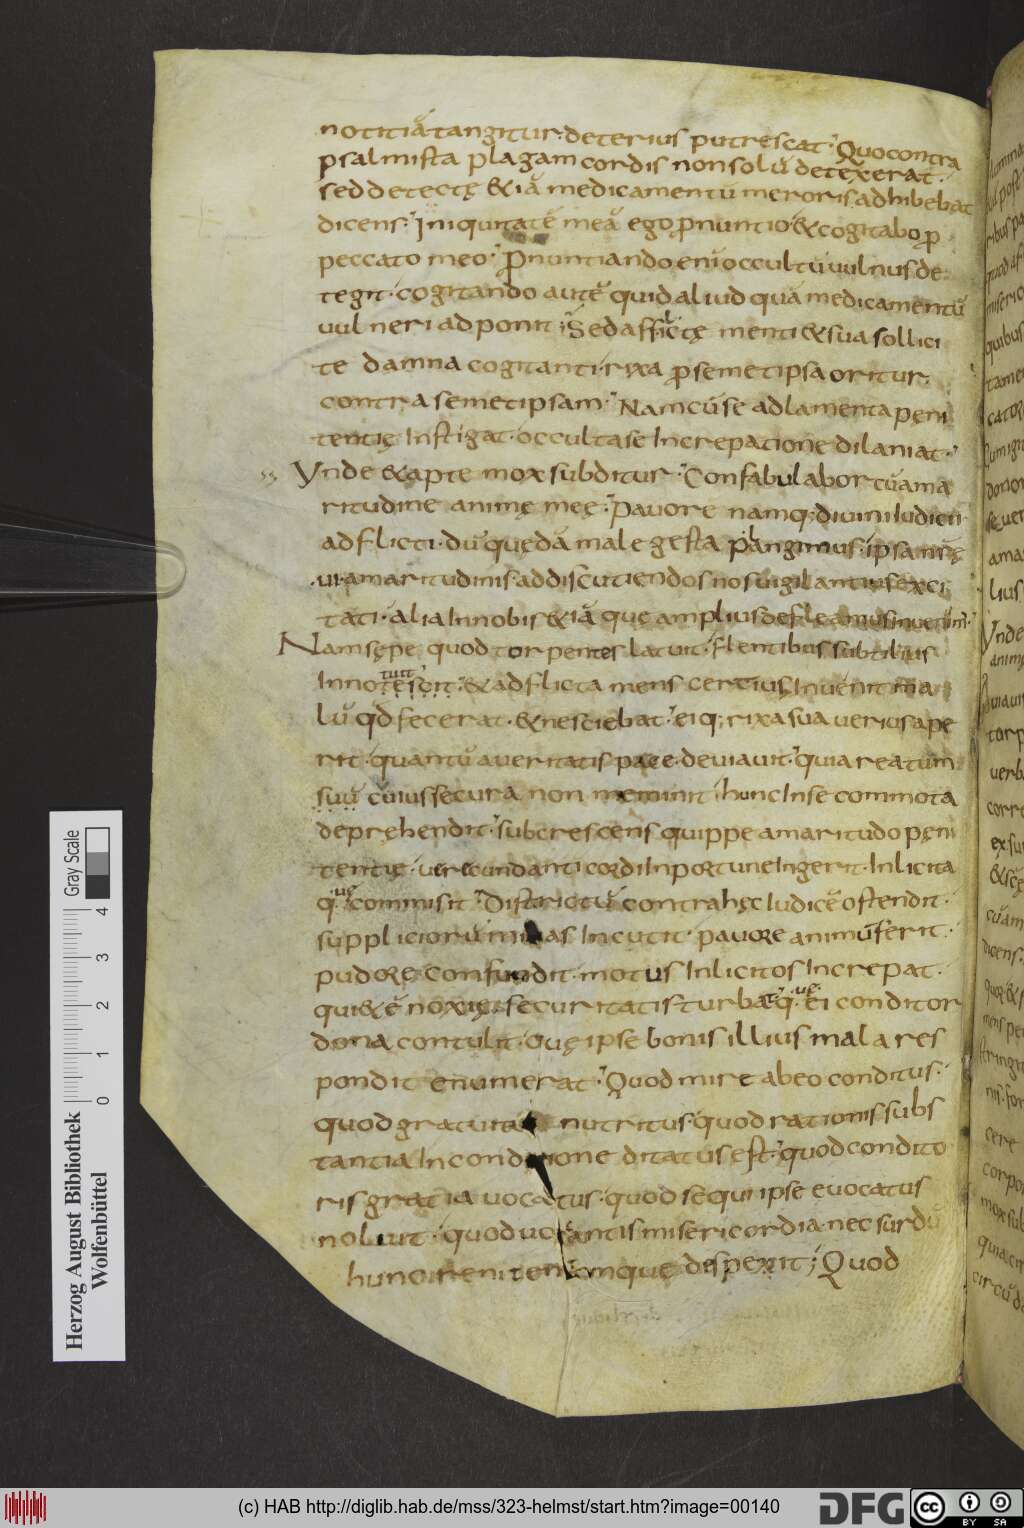 notitiā tangitur. deterius putrescat. Quo contra
psalmista plagam cordis non solū detexerat.
sed detectę & iā medicamentū meroris. adhibebat
dicens. Iniquitatē meā ego pnuntio & cogitabo p
peccato meo. Pnuntiando enī occultū uulnus de
tegit. cogitando autē quid aliud quā medicamentū
uulneri adponit; Sed afflictę menti & sua sollici
te damna cogitanti. rixa p semetipsa oritur.
contra semetipsam. Nam cū se ad lamenta pęni
tentię instigat. occulta se increpatione dilaniat.
Vnde & apte mox subditur. Confabulabor cū ama
ritudine animę meę. Pauore namq; diuini iudicii
adflicti. dū quędā male gesta plangimus. ipsa nrę
ui amaritudinis. ad discutiendos nos uigilantius exci
tati. alia in nobis & iā que amplius defleamus
Nam sępe quod torpentes latuit. flentibus subtilius
innotescit. & adflicta mens certius inuenit ma
tuit
lū qd fecerat. & nesciebat. eiq; rixa sua uerius ape
rit. quantū a ueritatis pace deuiauit. quia reatum
suū cuius secura non meminit. hunc in se commota
depręhendit. subcrescens quippe amaritudo pęni
tentię. uerecundanti cordi inportune ingerit. inlicita
quę commisit. Districtū contra hęc iudicē ostendit.
suppliciorū minas incutit. pauore animū ferit.
pudorę confundit. motus inlicitos increpat.
qui&ē noxię securitatis turbat. quę ei conditor
dona contulit. quę ipse bonis illius mala res
pondit enumerat. Quod mire ab eo conditus.
quod gratuite nutritus. quod rationis subs
tantia in conditione ditatus est. quod condito
ris gratia uocatus. quod sequi ipse euocatus
noluit. quod uocantis misericordia. nec surdū
hunc renitentemque despexit; Quod
Herzog August Bibliothek
Wolfenbüttel
0 1 2 3 4
Gray Scale
(c) HAB http://diglib.hab.de/mss/323-helmst/start.htm?image=00140
DFG
cc BY SA